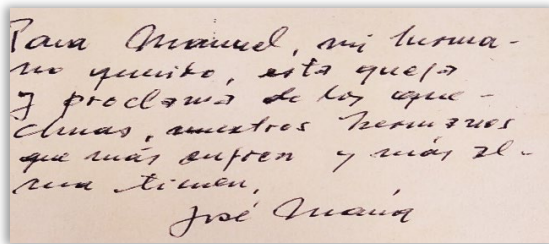 Para Manuel, mi herma-
no querido, esta queja
y proclama de los que-
chuas, nuestros hermanos
que más sufren y más al-
ma tienen,
José María